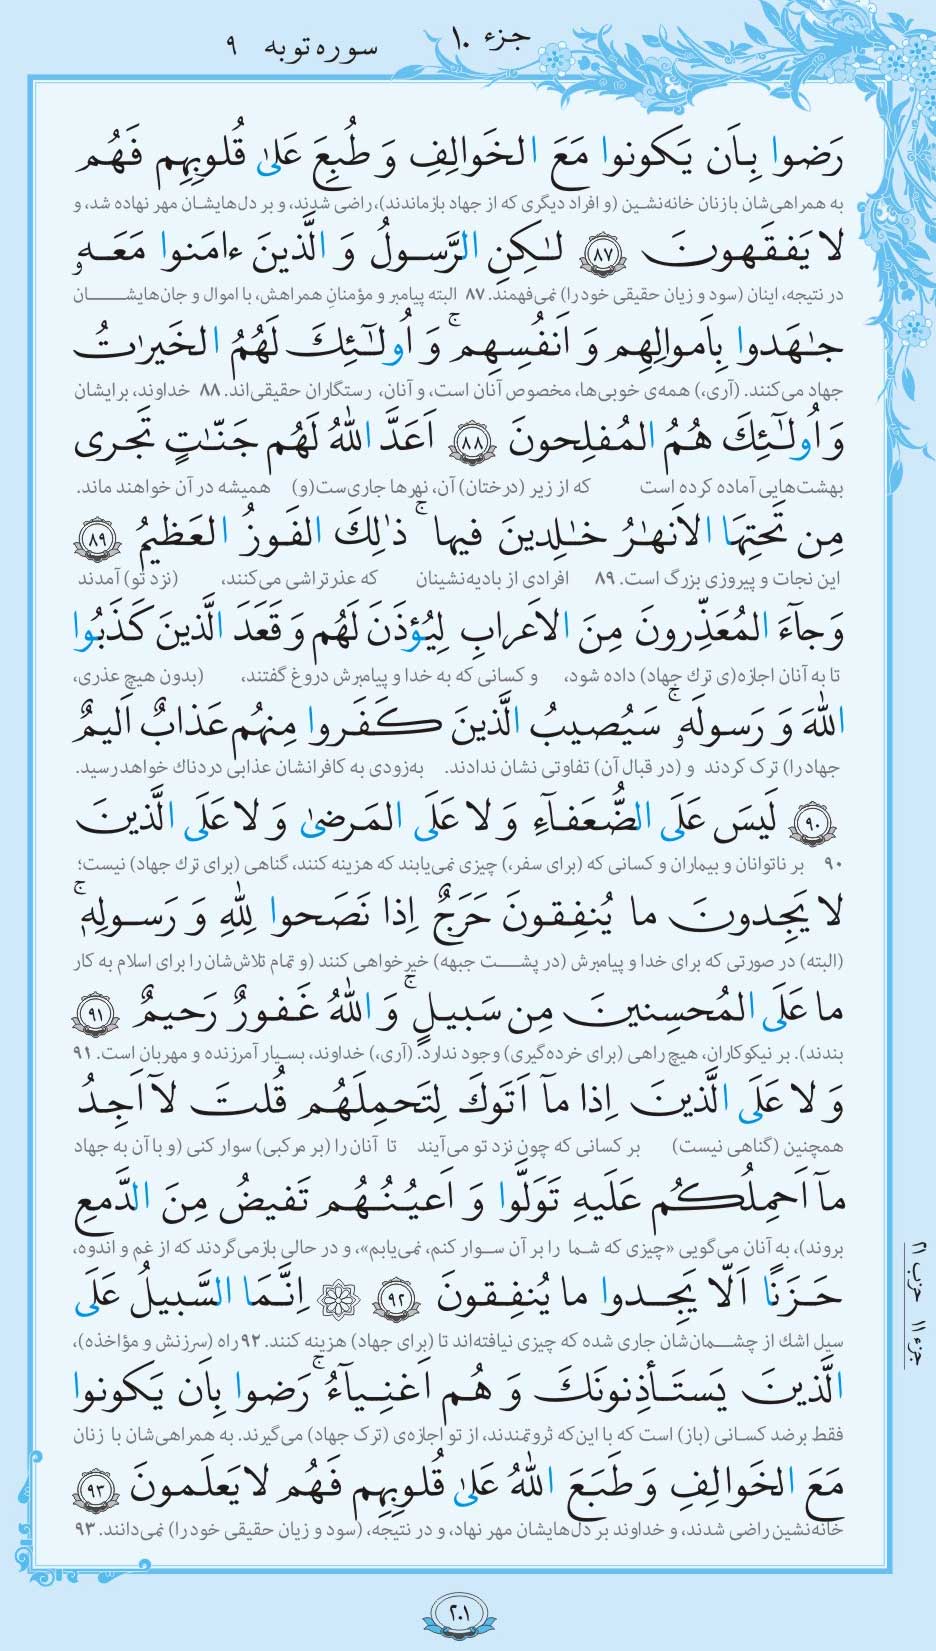 جزء ۱۰
سوره توبه ۹
رَضوا بِأَن يَكونوا مَعَ الخَوالِفِ وَ طُبِعَ عَلىٰ قُلوبِهِم فَهُم
به همراهی‌شان با زنان خانه‌نشین (و افراد دیگری که از جهاد بازماندند)، راضی شدند، و بر دل‌هایشان مهر نهاده شد، و
لا يَفقَهونَ ۸۷ لٰـكِنِ الرَّسولُ وَ الَّذينَ ءامَنوا مَعَهو
در نتیجه، اینان (سود و زیان حقیقی خود را) نمی‌فهمند. ۸۷ البته پیامبر و مؤمنانِ همراهش، با اموال و جان‌هایشان
جٰـهَدوا بِأَموالِهِم وَ اَنفُسِهِم ۚ وَ اُولـٰٓئِكَ لَهُمُ الخَيرٰتُ
جهاد می‌کنند. (آری،) همه‌ی خوبی‌ها، مخصوص آنان است، و آنان، رستگاران حقیقی‌اند. ۸۸ خداوند، برایشان
وَ اُولـٰٓئِكَ هُمُ المُفلِحونَ ۸۸ اَعَدَّ اللّٰهُ لَهُم جَنّـٰتٍ تَجرى
بهشت‌هایی آماده کرده است که از زیر (درختان) آن، نهرها جاری‌ست (و) همیشه در آن خواهند ماند.
مِن تَحتِهَا الاَنهٰـرُ خـٰلِدينَ فيها ۚ ذٰلِكَ الفَوزُ العَظيمُ ۸۹
این نجات و پیروزی بزرگ است. ۸۹ افرادی از بادیه‌نشینان که عذرتراشی می‌کنند، (نزد تو) آمدند
وَ جآءَ المُعَذِّرونَ مِنَ الاَعرابِ لِيُؤذَنَ لَهُم وَ قَعَدَ الَّذينَ كَذَبُوا
تا به آنان اجازه(ی ترك جهاد) داده شود، و کسانی که به خدا و پیامبرش دروغ گفتند، (بدون هیچ عذری،
اللّٰهَ وَ رَسولَهو ۚ سَيُصيبُ الَّذينَ كَفَروا مِنهُم عَذابٌ اَليمٌ
جهاد را) ترک کردند و (در قبال آن) تفاوتی نشان ندادند. به‌زودی به کافرانشان عذابی دردناك خواهد رسید.
۹۰ لَيسَ عَلَى الضُّعَفآءِ وَ لا عَلَى المَرضىٰ وَ لا عَلَى الَّذينَ
۹۰ بر ناتوانان و بیماران و کسانی که (برای سفر،) چیزی نمی‌یابند که هزینه کنند، گناهی (برای ترك جهاد) نیست؛
لا يَجِدونَ ما يُنفِقونَ حَرَجٌ اِذا نَصَحوا لِلّٰهِ وَ رَسولِهى ۚ
(البته) در صورتی که برای خدا و پیامبرش (در پشت جبهه) خیرخواهی کنند (و تمام تلاش‌شان را برای اسلام به کار
ما عَلَى المُحسِنينَ مِن سَبيلٍ ۚ وَ اللّٰهُ غَفورٌ رَحيمٌ ۹۱
بندند). بر نیکوکاران، هیچ راهی (برای خرده‌گیری) وجود ندارد. (آری،) خداوند، بسیار آمرزنده و مهربان است. ۹۱
وَ لا عَلَى الَّذينَ اِذا مآ اَتَوكَ لِتَحمِلَهُم قُلتَ لآ اَجِدُ
همچنین (گناهی نیست) بر کسانی که چون نزد تو می‌آیند تا آنان را (بر مرکبی) سوار کنی (و با آن به جهاد
مآ اَحمِلُكُم عَلَيهِ تَوَلَّوا وَ اَعيُنُهُم تَفيضُ مِنَ الدَّمعِ
بروند)، به آنان می‌گویی «چیزی که شما را بر آن سوار کنم، نمی‌یابم»، و در حالی بازمی‌گردند که از غم و اندوه،
حَزَنًا اَلّا يَجِدوا ما يُنفِقونَ ۹۲ اِنَّمَا السَّبيلُ عَلَى
سیل اشك از چشمان‌شان جاری شده که چیزی نیافته‌اند تا (برای جهاد) هزینه کنند. ۹۲ راه (سرزنش و مؤاخذه)،
الَّذينَ يَستَأذِنونَكَ وَ هُم اَغنِيآءُ ۚ رَضوا بِأَن يَكونوا
فقط برضد کسانی (باز) است که با این‌که ثروتمندند، از تو اجازه‌ی (ترک جهاد) می‌گیرند. به همراهی‌شان با زنان
مَعَ الخَوالِفِ وَ طَبَعَ اللّٰهُ عَلىٰ قُلوبِهِم فَهُم لا يَعلَمونَ ۹۳
خانه‌نشین راضی شدند، و خداوند بر دل‌هایشان مهر نهاد، و در نتیجه، (سود و زیان حقیقی خود را) نمی‌دانند. ۹۳
جزء ۱۱ حزب ۲۱
۲۰۱